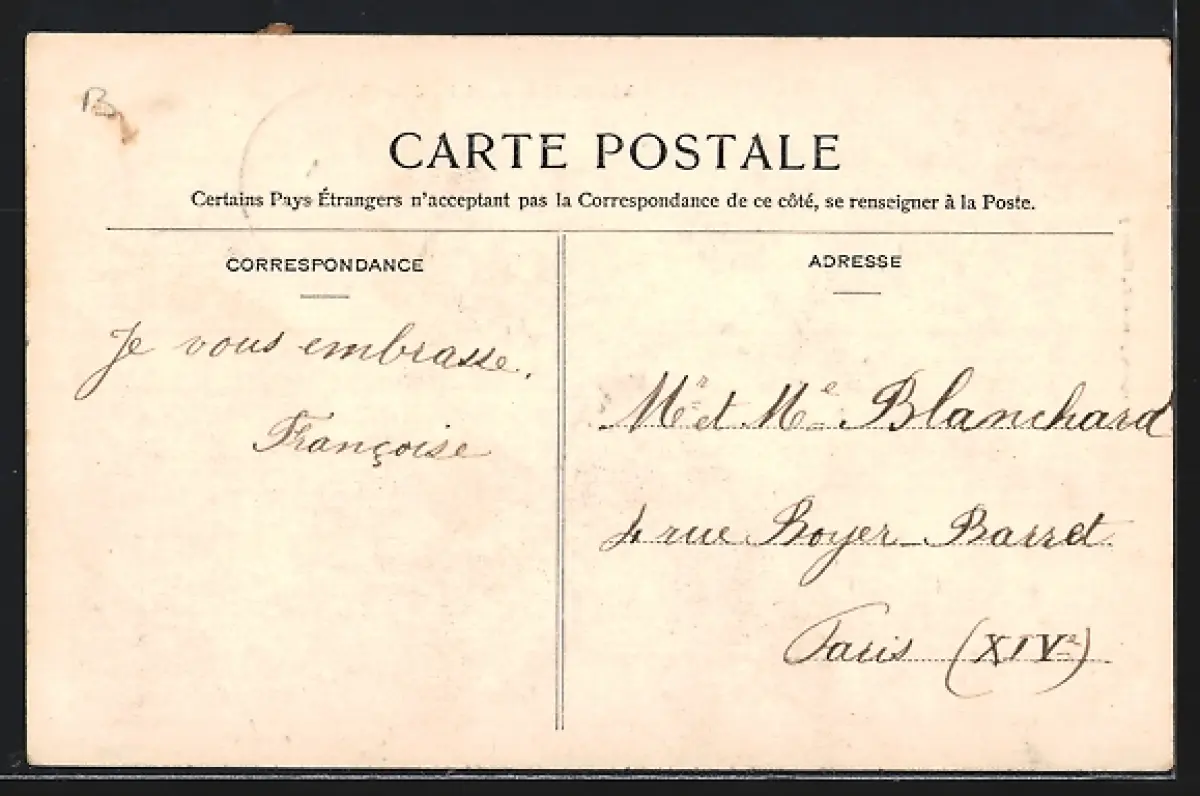 B
CARTE POSTALE
Certains Pays Étrangers n'acceptant pas la Correspondance de ce côté, se renseigner à la Poste.
CORRESPONDANCE
Je vous embrasse.
Françoise
ADRESSE
Mr et Me Blanchard
4 rue Boyer-Barret
Paris (XIVe)